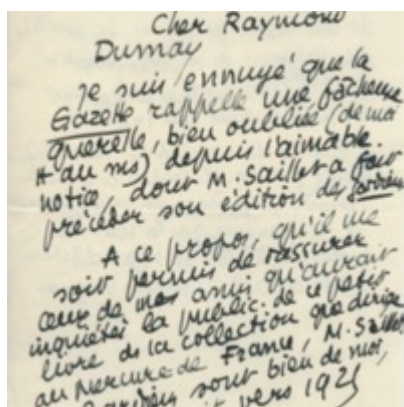 Cher Raymond
Dumay
Je suis ennuyé que la
Gazette rappelle une fâcheuse
querelle, bien oubliée (de moi
du ms) depuis l'aimable
notice, dont M. Saillet a fait
précéder son édition des
A ce propos, qu'il me
soit permis de rassurer
ceux de mes amis qu'aurait
inquiétés la public. de ce petit
livre ds la collection que dirige
au Mercure de France, M. Saillet
sont bien de moi,
vers 1925